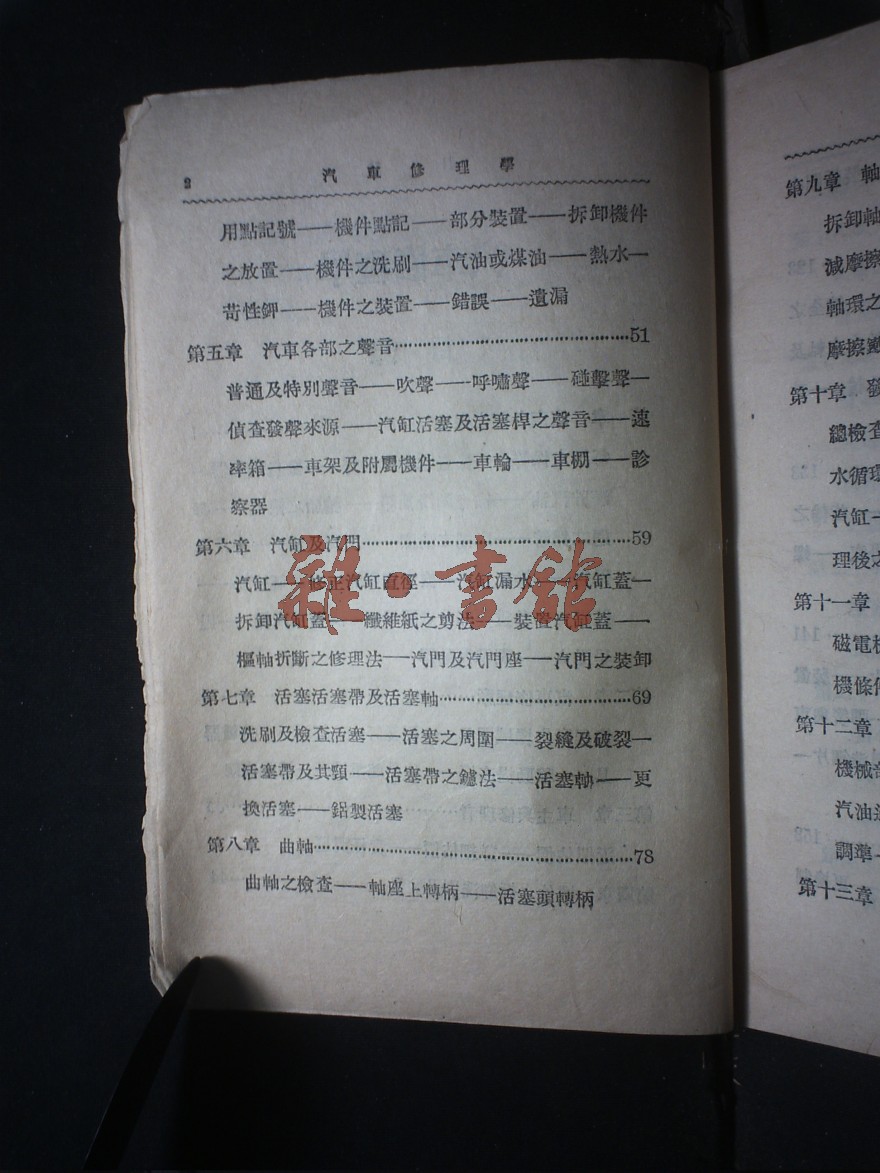 2 汽車修理學
用點記號——機件點記——部分裝置——拆卸機件
之放置——機件之洗刷——汽油或煤油——熱水—
苛性鉀——機件之裝置——錯誤——遺漏
第五章 汽車各部之聲音……………………51
普通及特別聲音——吹聲——呼嘯聲——碰擊聲—
偵查發聲來源——汽缸活塞及活塞桿之聲音——速
率箱——車架及附屬機件——車輪——車棚——診
察器
第六章 汽缸及汽門……………………59
汽缸——修正汽缸直徑——汽缸漏水——汽缸蓋—
拆卸汽缸蓋——纖維紙之剪法——裝置汽缸蓋——
樞軸折斷之修理法——汽門及汽門座——汽門之裝卸
第七章 活塞活塞帶及活塞軸……………………69
洗刷及檢查活塞——活塞之周圍——裂縫及破裂—
活塞帶及其頸——活塞帶之鑢法——活塞軸——更
換活塞——鋁製活塞
第八章 曲軸……………………78
曲軸之檢查——軸座上轉柄——活塞頭轉柄
雜·書館
第九章 軸
拆卸軸
減摩擦
軸環之
摩擦
第十章 發
總檢查
水循環
汽缸—
理後之
第十一章
磁電機
機條件
第十二章
機械部
汽油
調準—
第十三章